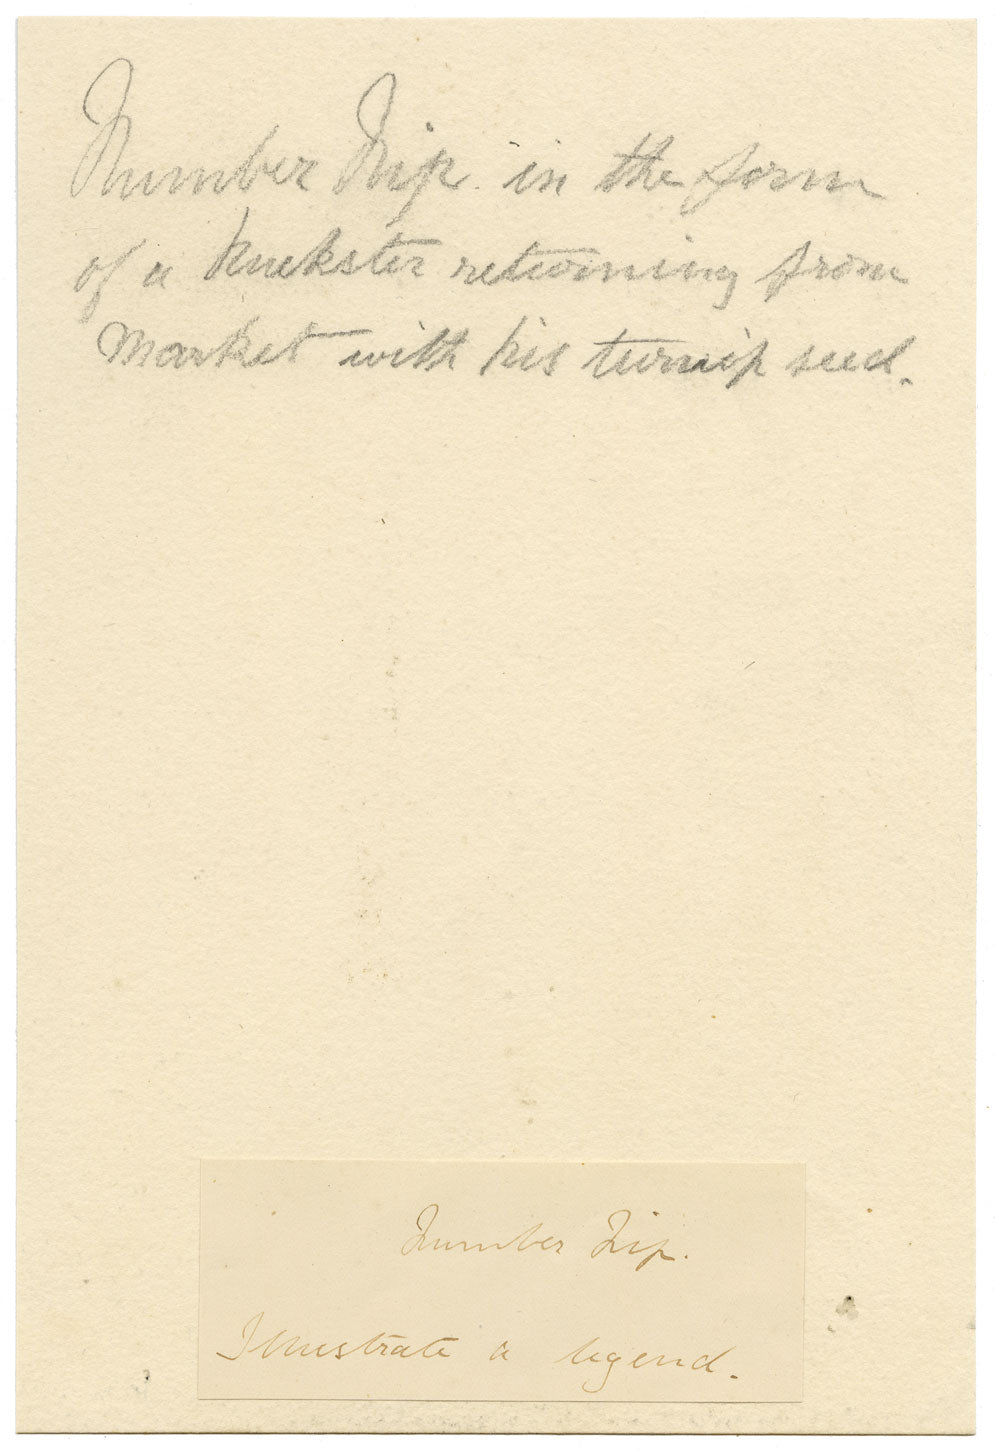 Number Nip. in the form
of a huckster returning from
Market with his turnip seed.
Number Nip.
Illustrate a legend.